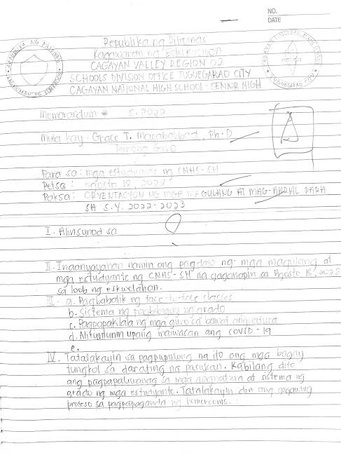 NO.
DATE
Republika ng Pilipinas
Kagawaran ng Edukasyon
CAGAYAN VALLEY REGION 02
SCHOOLS DIVISION OFFICE TUGUEGARAD CITY
CAGAYAN NATIONAL HIGH SCHOOL - SENIOR HIGH
Memorandum # 5, 2022
Mula kay: Grace T. Ph.D
Para sa: mga estudyante ng CNHS-SH
Petsa: Agosto 18, 2022
Paksa: ORYENTASYON NG MGA MAGULANG AT MAG-AARAL PARA
SA S.Y. 2022-2023
I. Alinsunod sa
II. Inaanyayahan namin ang pagdalo ng mga magulang at
mga estudyante ng CNHS-SH na gaganapin sa Agosto 2022
sa loob ng eskwelahan.
III. a. Pagbabalik ng face-to-face classes
b. Sistema ng ng grado
c. Pagpapakilala ng mga guro sa bawat asignatura
d. upang maiwasan ang COVID-19
e.
IV. Tatalakayin sa pagpupulong na ito ang mga bagay
tungkol sa darating na pasukan. Kabilang dito
ang sa mga asignatura at sistema ng
grado ng mga estudyante. Tatalakayin din ang
proseso sa